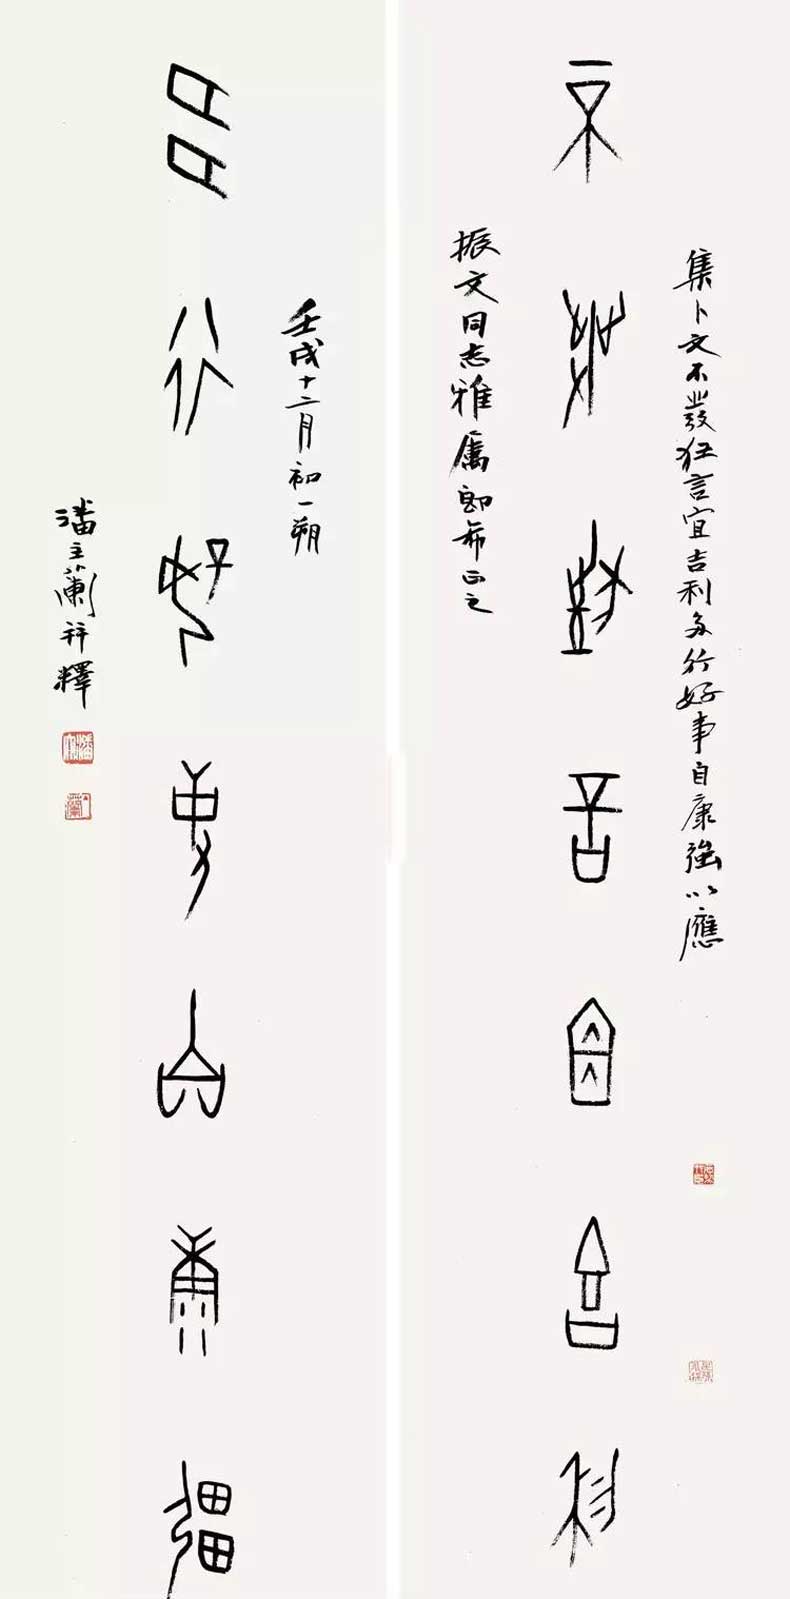 集卜文不發狂言宜吉利多行好事自康強以應
不發狂言宜吉利
振文同志雅屬即希正之
壬戌十二月初一朔
多行好事自康強
潘主蘭并釋